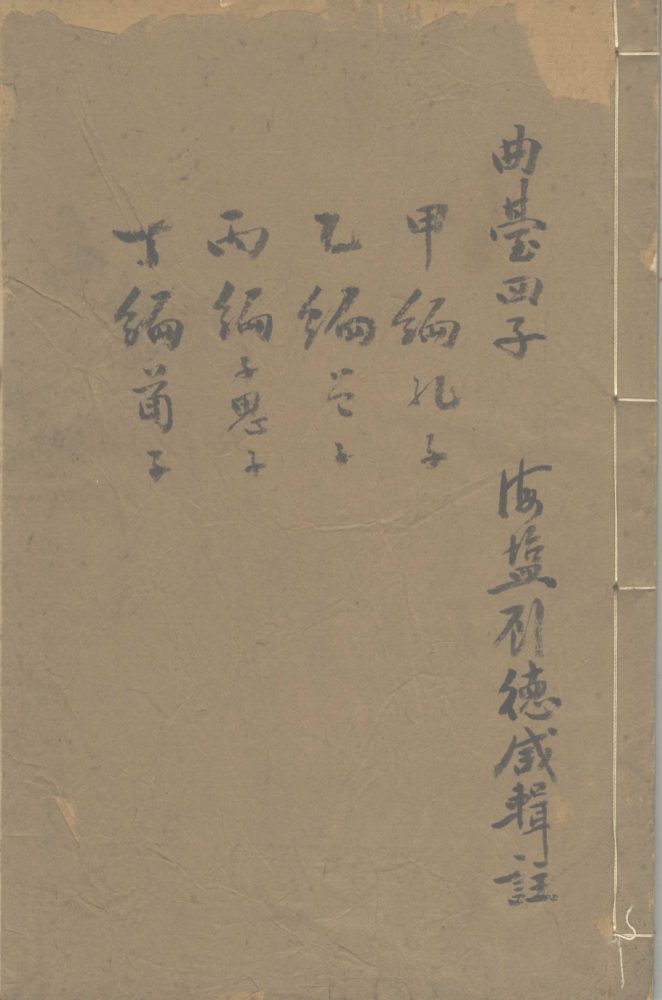 曲臺四子 海塩 德 輯註
甲編孔子
乙編曾子
丙編子思子
丁編荀子